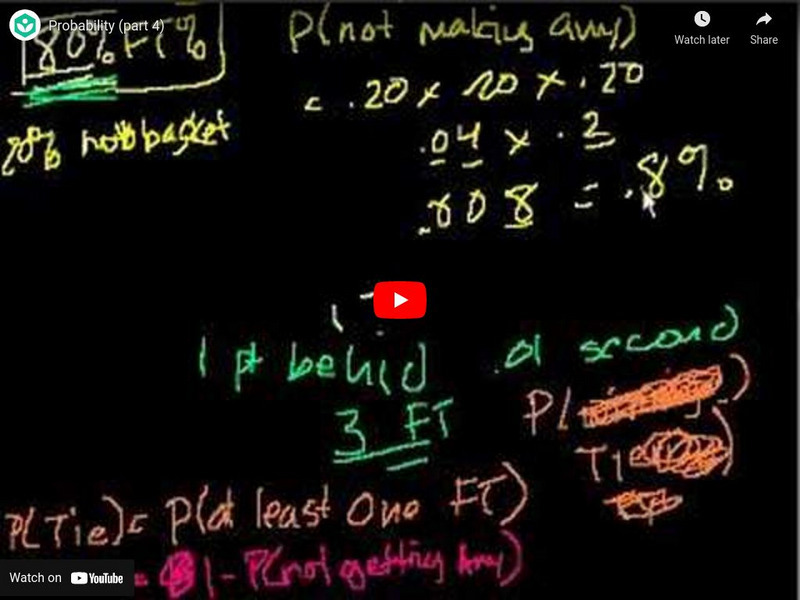 Probability (part 4)
Watch later
Share
80% FT%
P(not making any)
= .20 x .20 x .20
20% not basket
.04 x . 2
.008 = .8%
1 pt behind .01 second
3 FT
P(
Tie
P(Tie)= P(at least One FT)
= 1 - P(not getting Any)
Watch on YouTube